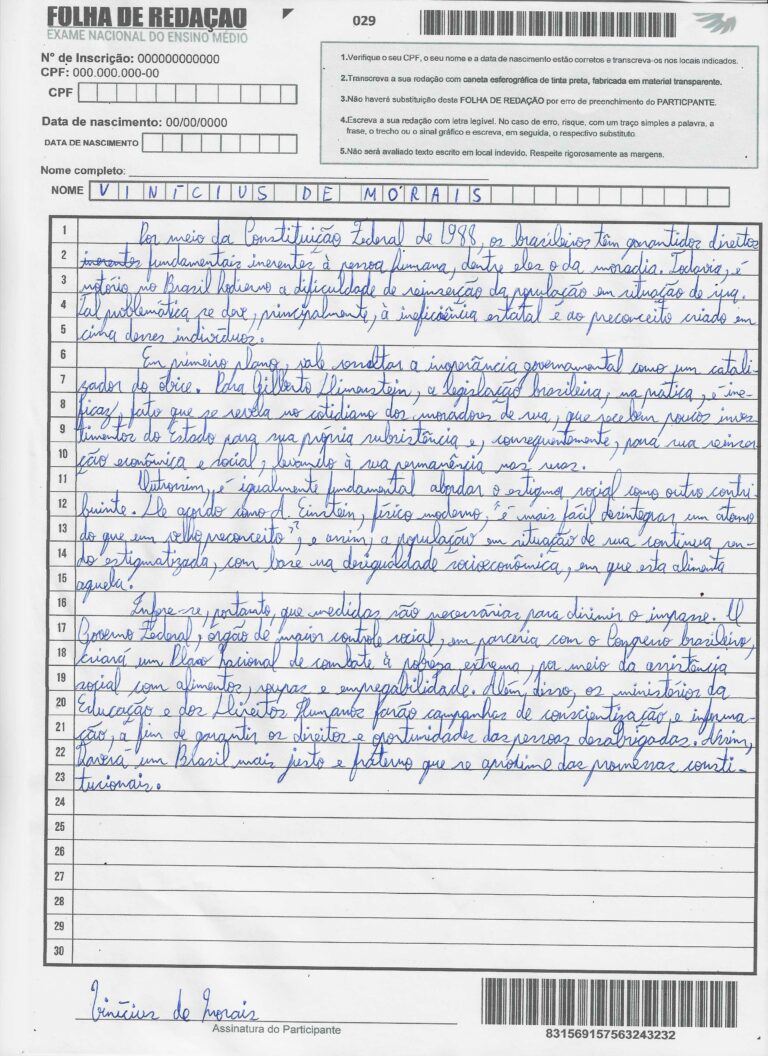 FOLHA DE REDAÇÃO
EXAME NACIONAL DO ENSINO MÉDIO
029
N° de Inscrição: 000000000000
CPF: 000.000.000-00
CPF
Data de nascimento: 00/00/0000
DATA DE NASCIMENTO
1.Verifique o seu CPF, o seu nome e a data de nascimento estão corretos e transcreva-os nos locais indicados.
2.Transcreva a sua redação com caneta esferográfica de tinta preta, fabricada em material transparente.
3.Não haverá substituição desta FOLHA DE REDAÇÃO por erro de preenchimento do PARTICIPANTE.
4.Escreva a sua redação com letra legível. No caso de erro, risque, com um traço simples a palavra, a
frase, o trecho ou o sinal gráfico e escreva, em seguida, o respectivo substituto.
5.Não será avaliado texto escrito em local indevido. Respeite rigorosamente as margens.
Nome completo:
NOME VINÍCIUS DE MORAIS
1 Por meio da Constituição Federal de 1988, os brasileiros têm garantidos direitos
2 inerentes fundamentais inerentes à pessoa humana, dentre eles o da moradia. Todavia, é
3 notório no Brasil hodierno a dificuldade de reinserção da população em situação de rua.
4 Tal problemática se deve, principalmente, à ineficiência estatal e ao preconceito criado em
5 cima desses indivíduos.
6 Em primeiro plano, vale ressaltar a inoperância governamental como um catali-
7 zador do óbice. Para Gilberto Dimenstein, a legislação brasileira, na prática, é ine-
8 ficaz, fato que se revela no cotidiano dos moradores de rua, que recebem poucos inves-
9 timentos do Estado para sua própria subsistência e, consequentemente, para sua reinser-
10 ção econômica e social, levando à sua permanência nas ruas.
11 Outrossim, é igualmente fundamental abordar o estigma social como outro contri-
12 buinte. De acordo como A. Einstein, físico moderno, "é mais fácil desintegrar um átomo
13 do que um velho preconceito", e assim, a população em situação de rua continua sen-
14 do estigmatizada, com base na desigualdade socioeconômica, em que esta alimenta
15 aquela.
16 Infere-se, portanto, que medidas são necessárias para dirimir o impasse. O
17 Governo Federal, órgão de maior controle social, em parceria com o Congresso brasileiro,
18 criará um Plano Nacional de combate à pobreza extrema, por meio da assistência
19 social com alimentos, roupas e empregabilidade. Além disso, os ministérios da
20 Educação e dos Direitos Humanos farão campanhas de conscientização e informa-
21 ção, a fim de garantir os direitos e oportunidades das pessoas desabrigadas. Assim,
22 haverá um Brasil mais justo e fraterno que se aproxime das promessas consti-
23 tucionais.
24
25
26
27
28
29
30
Vinícius de Morais
Assinatura do Participante
831569157563243232